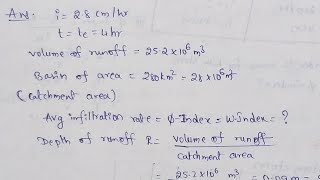 Ans: i = 2.8 cm/hr
t = te = 4hr
volume of runoff = 25.2 × 10⁶ m³
Basin of area = 280km² = 28 × 10⁶ m²
(catchment area)
Avg infiltration rate = Φ-Index = W-Index = ?
Depth of runoff R = volume of runoff
catchment area
= 25.2 × 10⁶ m³